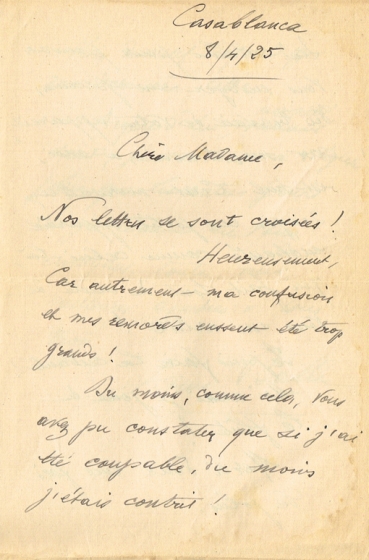 Casablanca
8/4/25
Chère Madame,
Nos lettres se sont croisées !
Heureusement,
Car autrement ma confusion
et mes remords eussent été trop
grands !
Du moins, comme cela, vous
avez pu constater que si j'ai
été coupable, du moins
j'étais contrit !